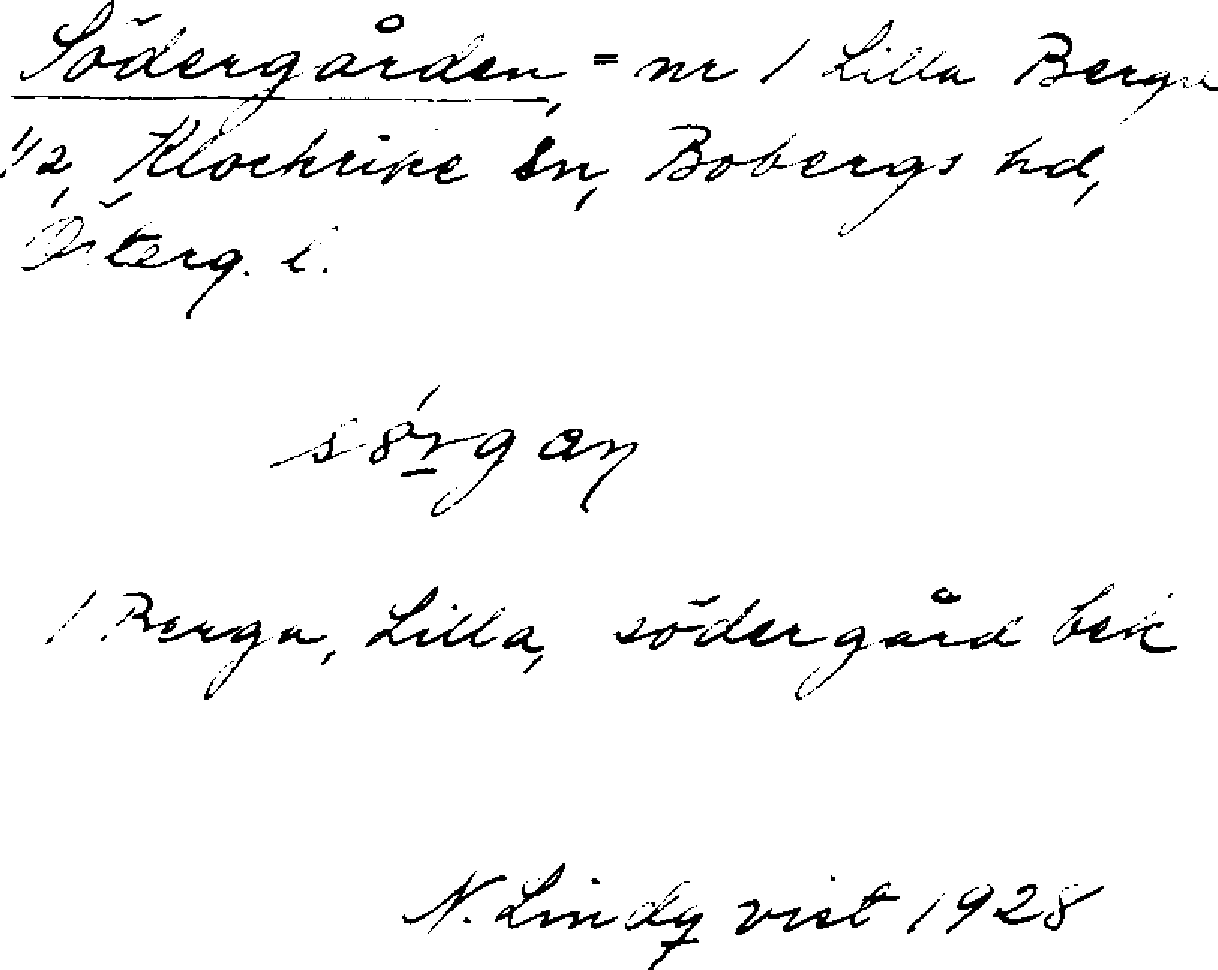 Södergården, = nr 1 Lilla Berga
1/2, Klockrike sn, Bobergs hd,
Österg. l.
1 Berga, Lilla, södergård bek
N. Lindqvist 1928